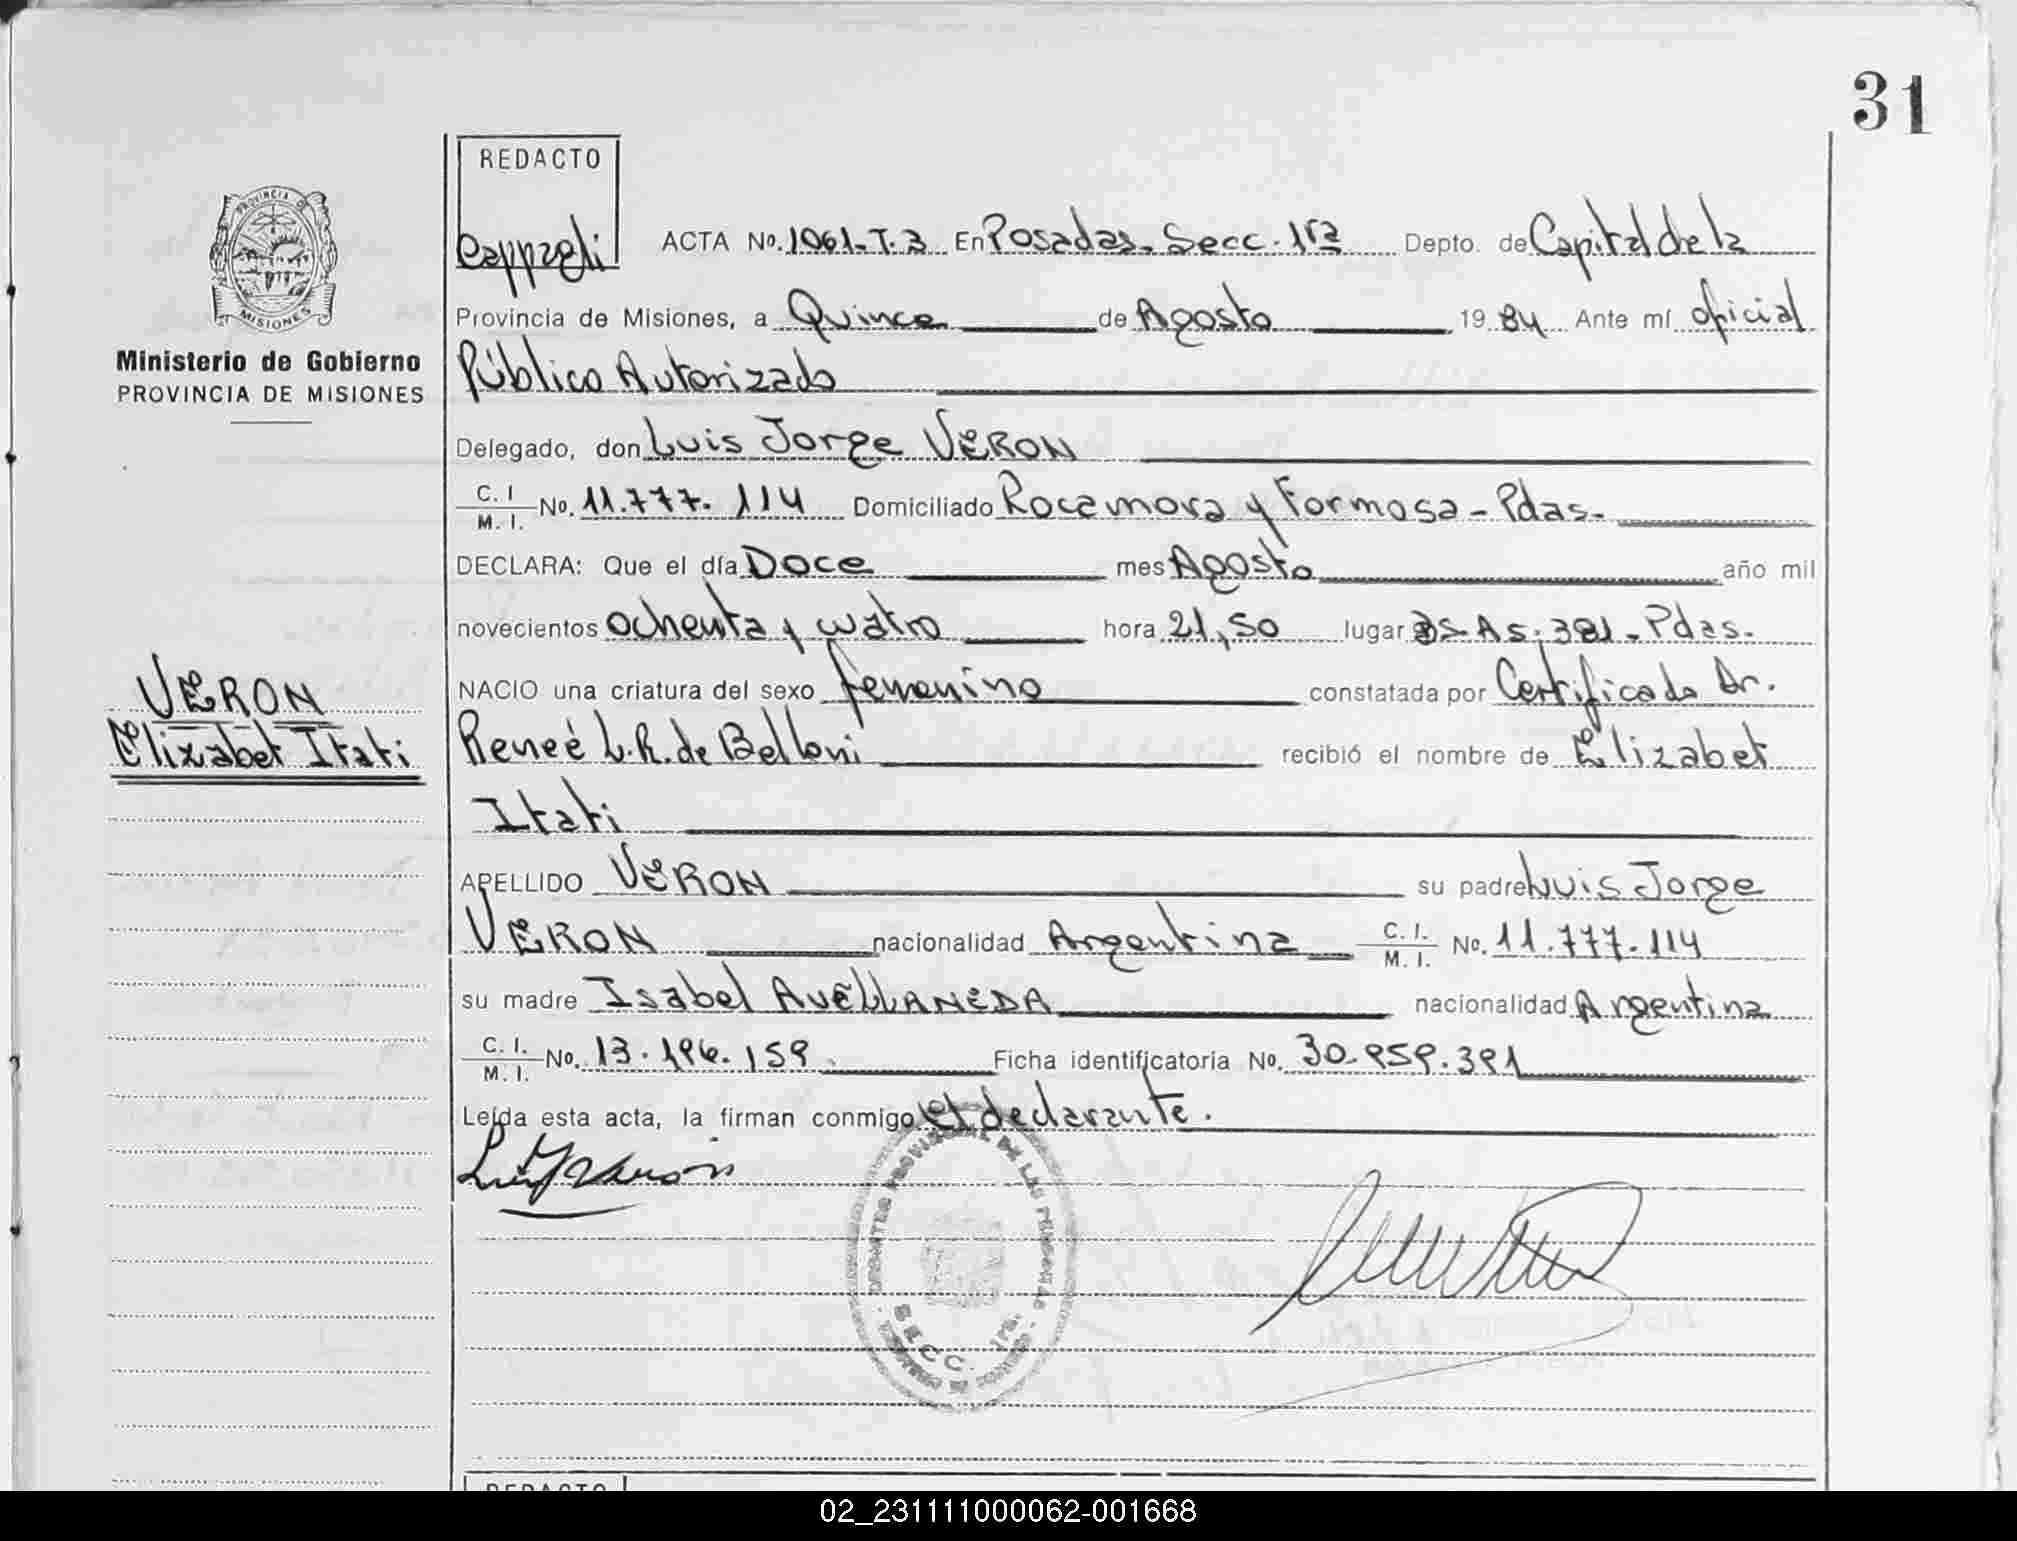 31
REDACTO
Cappagli
ACTA No. 1061-T.3 En Posadas. Secc. 1ra Depto. de Capital de la
PROVINCIA DE
MISIONES
Ministerio de Gobierno
PROVINCIA DE MISIONES
Provincia de Misiones, a Quince de Agosto 19 84 Ante mí oficial
Público Autorizado
Delegado, don Luis Jorge VERON
C. I. M. I. No. 11.777.114 Domiciliado Rocamora y Formosa - Pdas.
DECLARA: Que el día Doce mes Agosto año mil
novecientos ochenta y cuatro hora 21,50 lugar Bs. As. 381 - Pdas.
NACIO una criatura del sexo femenino constatada por Certificado Dr.
VERON
Elizabet Itati
Reneé L.R. de Belloni recibió el nombre de Elizabet
Itati
APELLIDO VERON su padre Luis Jorge
VERON nacionalidad Argentina C. I. M. I. No. 11.777.114
su madre Isabel AVELLANEDA nacionalidad Argentina
C. I. M. I. No. 13.196.159. Ficha identificatoria No. 30.959.391
Leída esta acta, la firman conmigo el declarante.
PROVINCIAL DE LAS PERSONAS
SECC. 1ra.
REDACTO
02_231111000062-001668